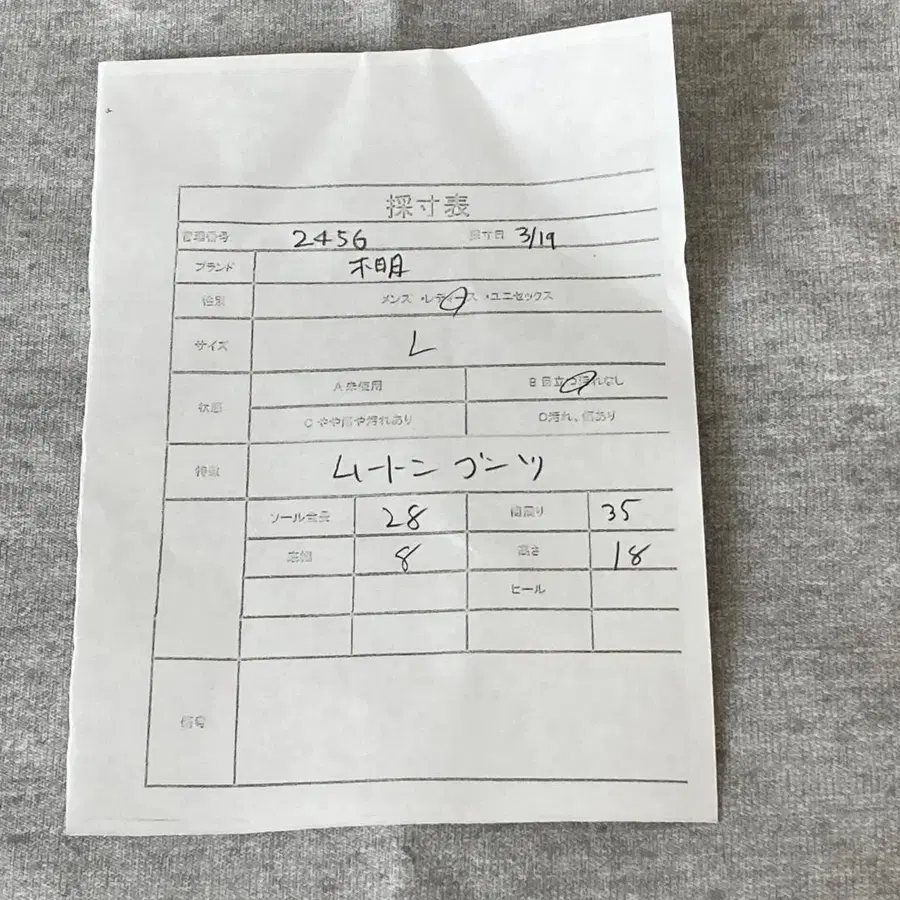 採寸表
管理番号 2456 採寸日 3/19
ブランド 不明
性別 メンズ・レディース・ユニセックス
サイズ L
状態 A未使用 B目立つ汚れなし
Cやや傷や汚れあり D汚れ、傷あり
特徴 ムートンブーツ
ソール全長 28 履周り 35
底幅 8 高さ 18
ヒール
備考